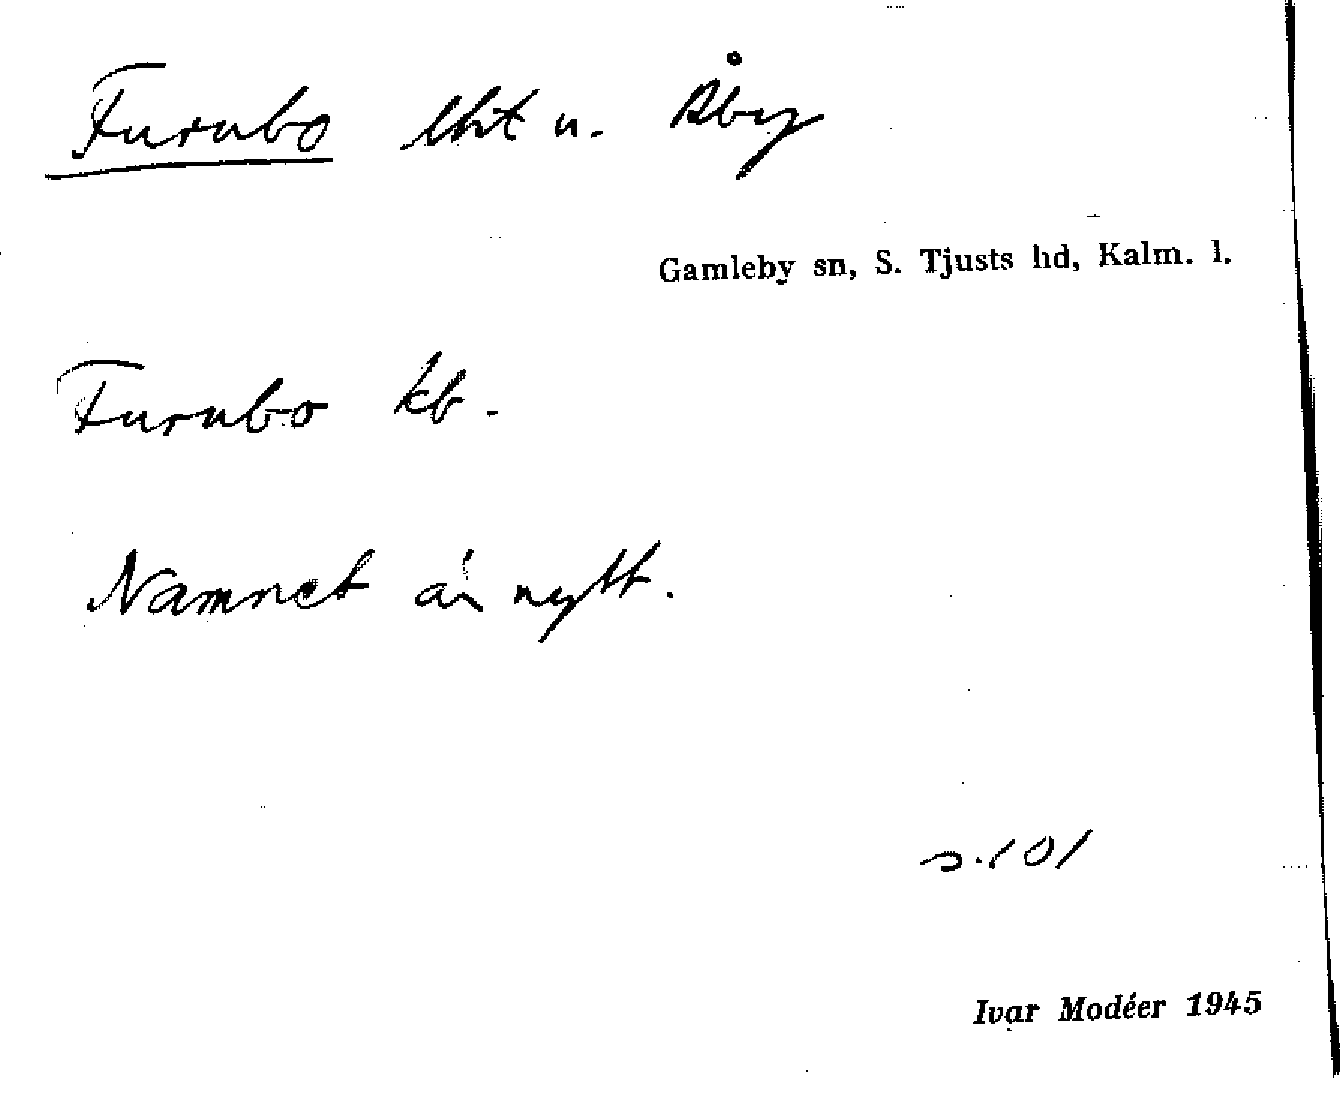 Furubo lht u. Åby
Gamleby sn, S. Tjusts hd, Kalm. l.
Furubo kb.
Namnet är nytt.
s. 101
Ivar Modéer 1945